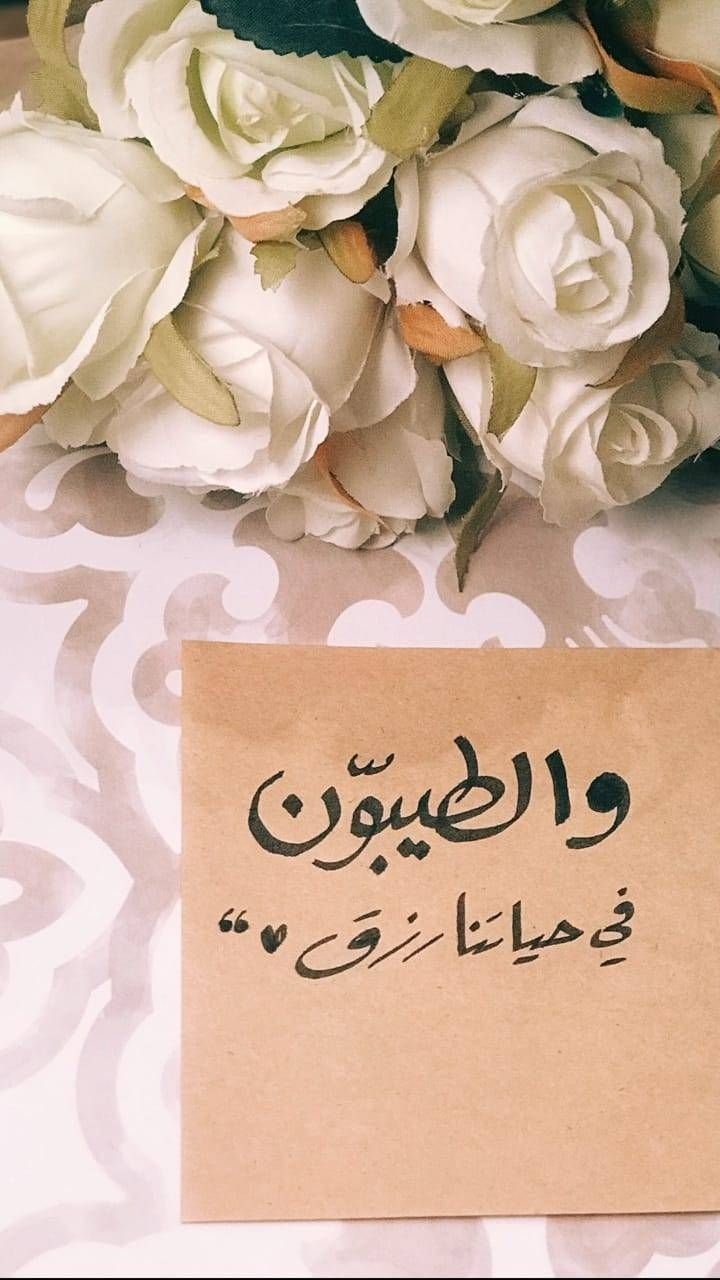 والطيبّون
في حياتنا رزق ♥ “